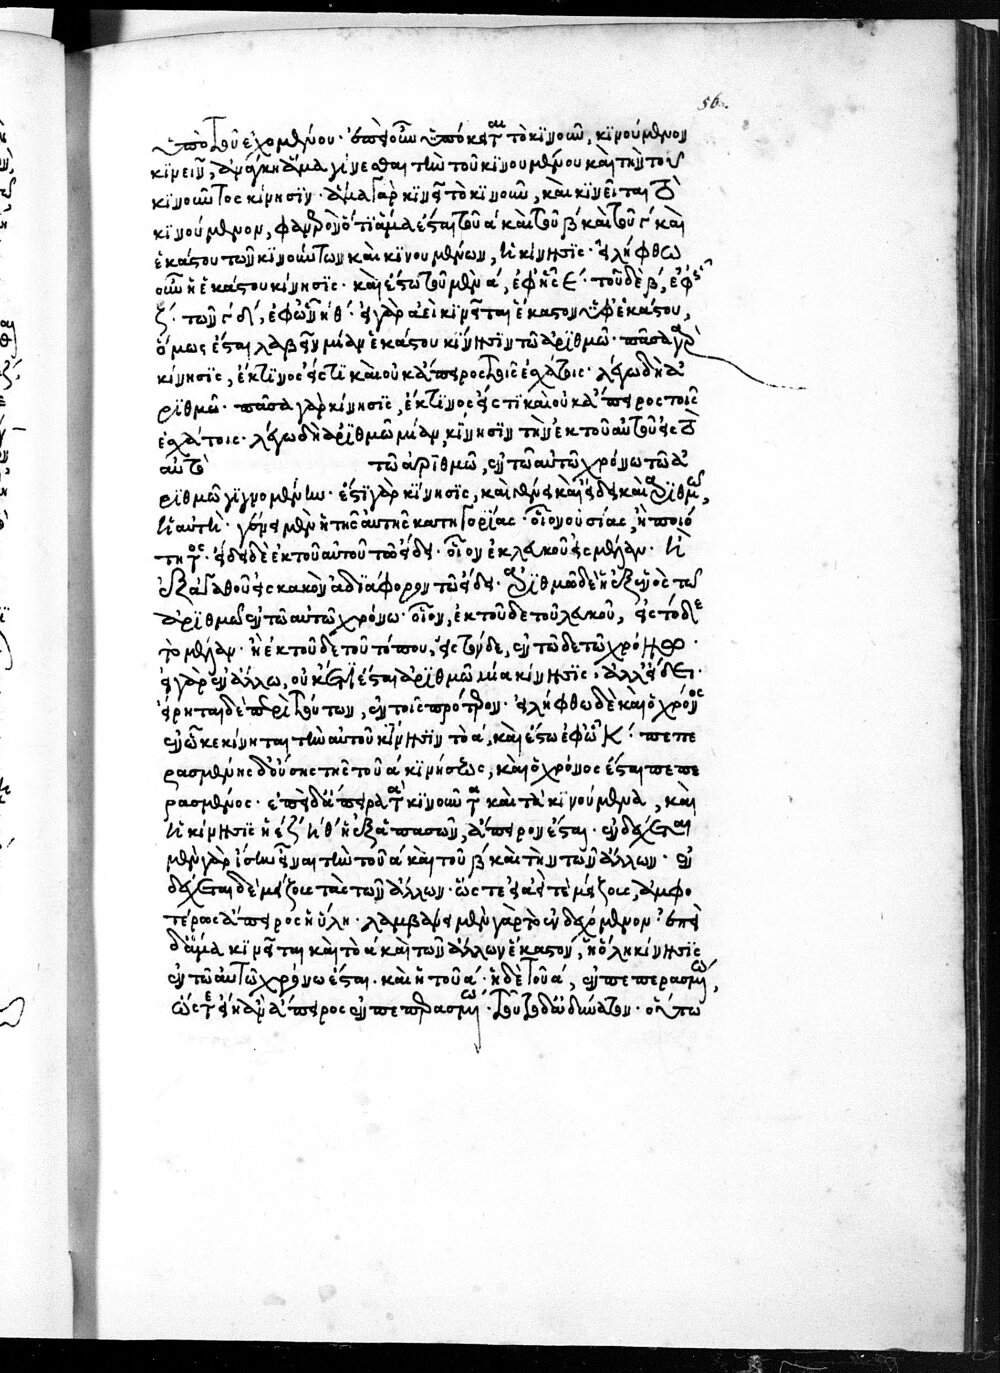 56.
ὑπὸ τοῦ ἐχομένου· ἐπεὶ οὖν ὑπόκειται τὸ κινοῦν, κινούμενον
κινεῖν, ἀνάγκη ἅμα γίνεσθαι τὴν τοῦ κινουμένου καὶ τὴν τοῦ
κινοῦντος κίνησιν· ἅμα γὰρ κινεῖ τὸ κινοῦν, καὶ κινεῖται τὸ
κινούμενον, φανερὸν ὅτι ἅμα ἔσται τοῦ α καὶ τοῦ β καὶ τοῦ γ καὶ
ἑκάστου τῶν κινούντων καὶ κινουμένων, ἡ κίνησις· εἰλήφθω
οὖν ἡ ἑκάστου κίνησις· καὶ ἔστω τοῦ μὲν α, ἐφ' ἧς ε· τοῦ δὲ β, ἐφ' ἧς
ζ· τῶν γ δ, ἐφ' ὧν η θ· εἰ γὰρ ἀεὶ κινεῖται ἕκαστον ὑφ' ἑκάστου,
ὅμως ἔσται λαβεῖν μίαν ἑκάστου κίνησιν τῷ ἀριθμῷ· πᾶσα γὰρ
κίνησις, ἔκ τινος εἴς τι καὶ οὐκ ἄπειρος τοῖς ἐσχάτοις· λέγω δὴ ἀ
ριθμῷ· πᾶσα γὰρ κίνησις, ἔκ τινος εἴς τι καὶ οὐκ ἄπειρος τοῖς
ἐσχάτοις· λέγω δὴ ἀριθμῷ μίαν, κίνησιν τὴν ἐκ τοῦ αὐτοῦ εἰς τὸ
αὐτὸ τῷ ἀριθμῷ, ἐν τῷ αὐτῷ χρόνῳ τῷ ἀ
ριθμῷ γιγνομένην· ἔστι γὰρ κίνησις, καὶ γένει καὶ εἴδει καὶ ἀριθμῷ,
ἡ αὐτὴ· γένει μὲν ἡ τῆς αὐτῆς κατηγορίας· οἷον οὐσίας, ἢ ποιό
τητος· εἴδει δὲ ἐκ τοῦ αὐτοῦ τῷ εἴδει· οἷον ἐκ λευκοῦ εἰς μέλαν· ἢ
ἐξ ἀγαθοῦ εἰς κακὸν ἀδιάφορον τῷ εἴδει· ἀριθμῷ δὲ ἡ ἐξ ἑνὸς τῷ
ἀριθμῷ ἐν τῷ αὐτῷ χρόνῳ· οἷον, ἐκ τοῦδε τοῦ λευκοῦ, εἰς τόδε
τὸ μέλαν· ἢ ἐκ τοῦδε τοῦ τόπου, εἰς τόνδε, ἐν τῷδε τῷ χρόνῳ·
εἰ γὰρ ἐν ἄλλῳ, οὐκέτι ἔσται ἀριθμῷ μία κίνησις· ἀλλ' εἴδει·
εἴρηται δὲ περὶ τούτων, ἐν τοῖς πρότερον· εἰλήφθω δὲ καὶ ὁ χρόνος
ἐν ᾧ κεκίνηται τὴν αὑτοῦ κίνησιν τὸ α, καὶ ἔστω ἐφ' ᾧ Κ· πεπε
ρασμένης δ' οὔσης τῆς τοῦ α κινήσεως, καὶ ὁ χρόνος ἔσται πεπε
ρασμένος· ἐπεὶ δ' ἄπειρα τὰ κινοῦντα καὶ τὰ κινούμενα, καὶ
ἡ κίνησις ἡ εζηθ ἡ ἐξ ἁπασῶν, ἄπειρον ἔσται· ἐνδέχεται
μὲν γὰρ ἴσην εἶναι τὴν τοῦ α καὶ τοῦ β καὶ τὴν τῶν ἄλλων· ἐν
δέχεται δὲ μείζους τὰς τῶν ἄλλων· ὥστε εἰ ἀεί τε μείζους, ἀμφο
τέρως ἄπειρος ἡ ὅλη· λαμβάνομεν γὰρ τὸ ἐνδεχόμενον· ἐπεὶ
δ' ἅμα κινεῖται καὶ τὸ α καὶ τῶν ἄλλων ἕκαστον, ἡ ὅλη κίνησις
ἐν τῷ αὐτῷ χρόνῳ ἔσται. καὶ ἡ τοῦ α· ἡ δὲ τοῦ α, ἐν πεπερασμένῳ,
ὥστε εἴη ἂν ἄπειρος ἐν πεπερασμένῳ· τοῦτο δ' ἀδύνατον· οὕτω